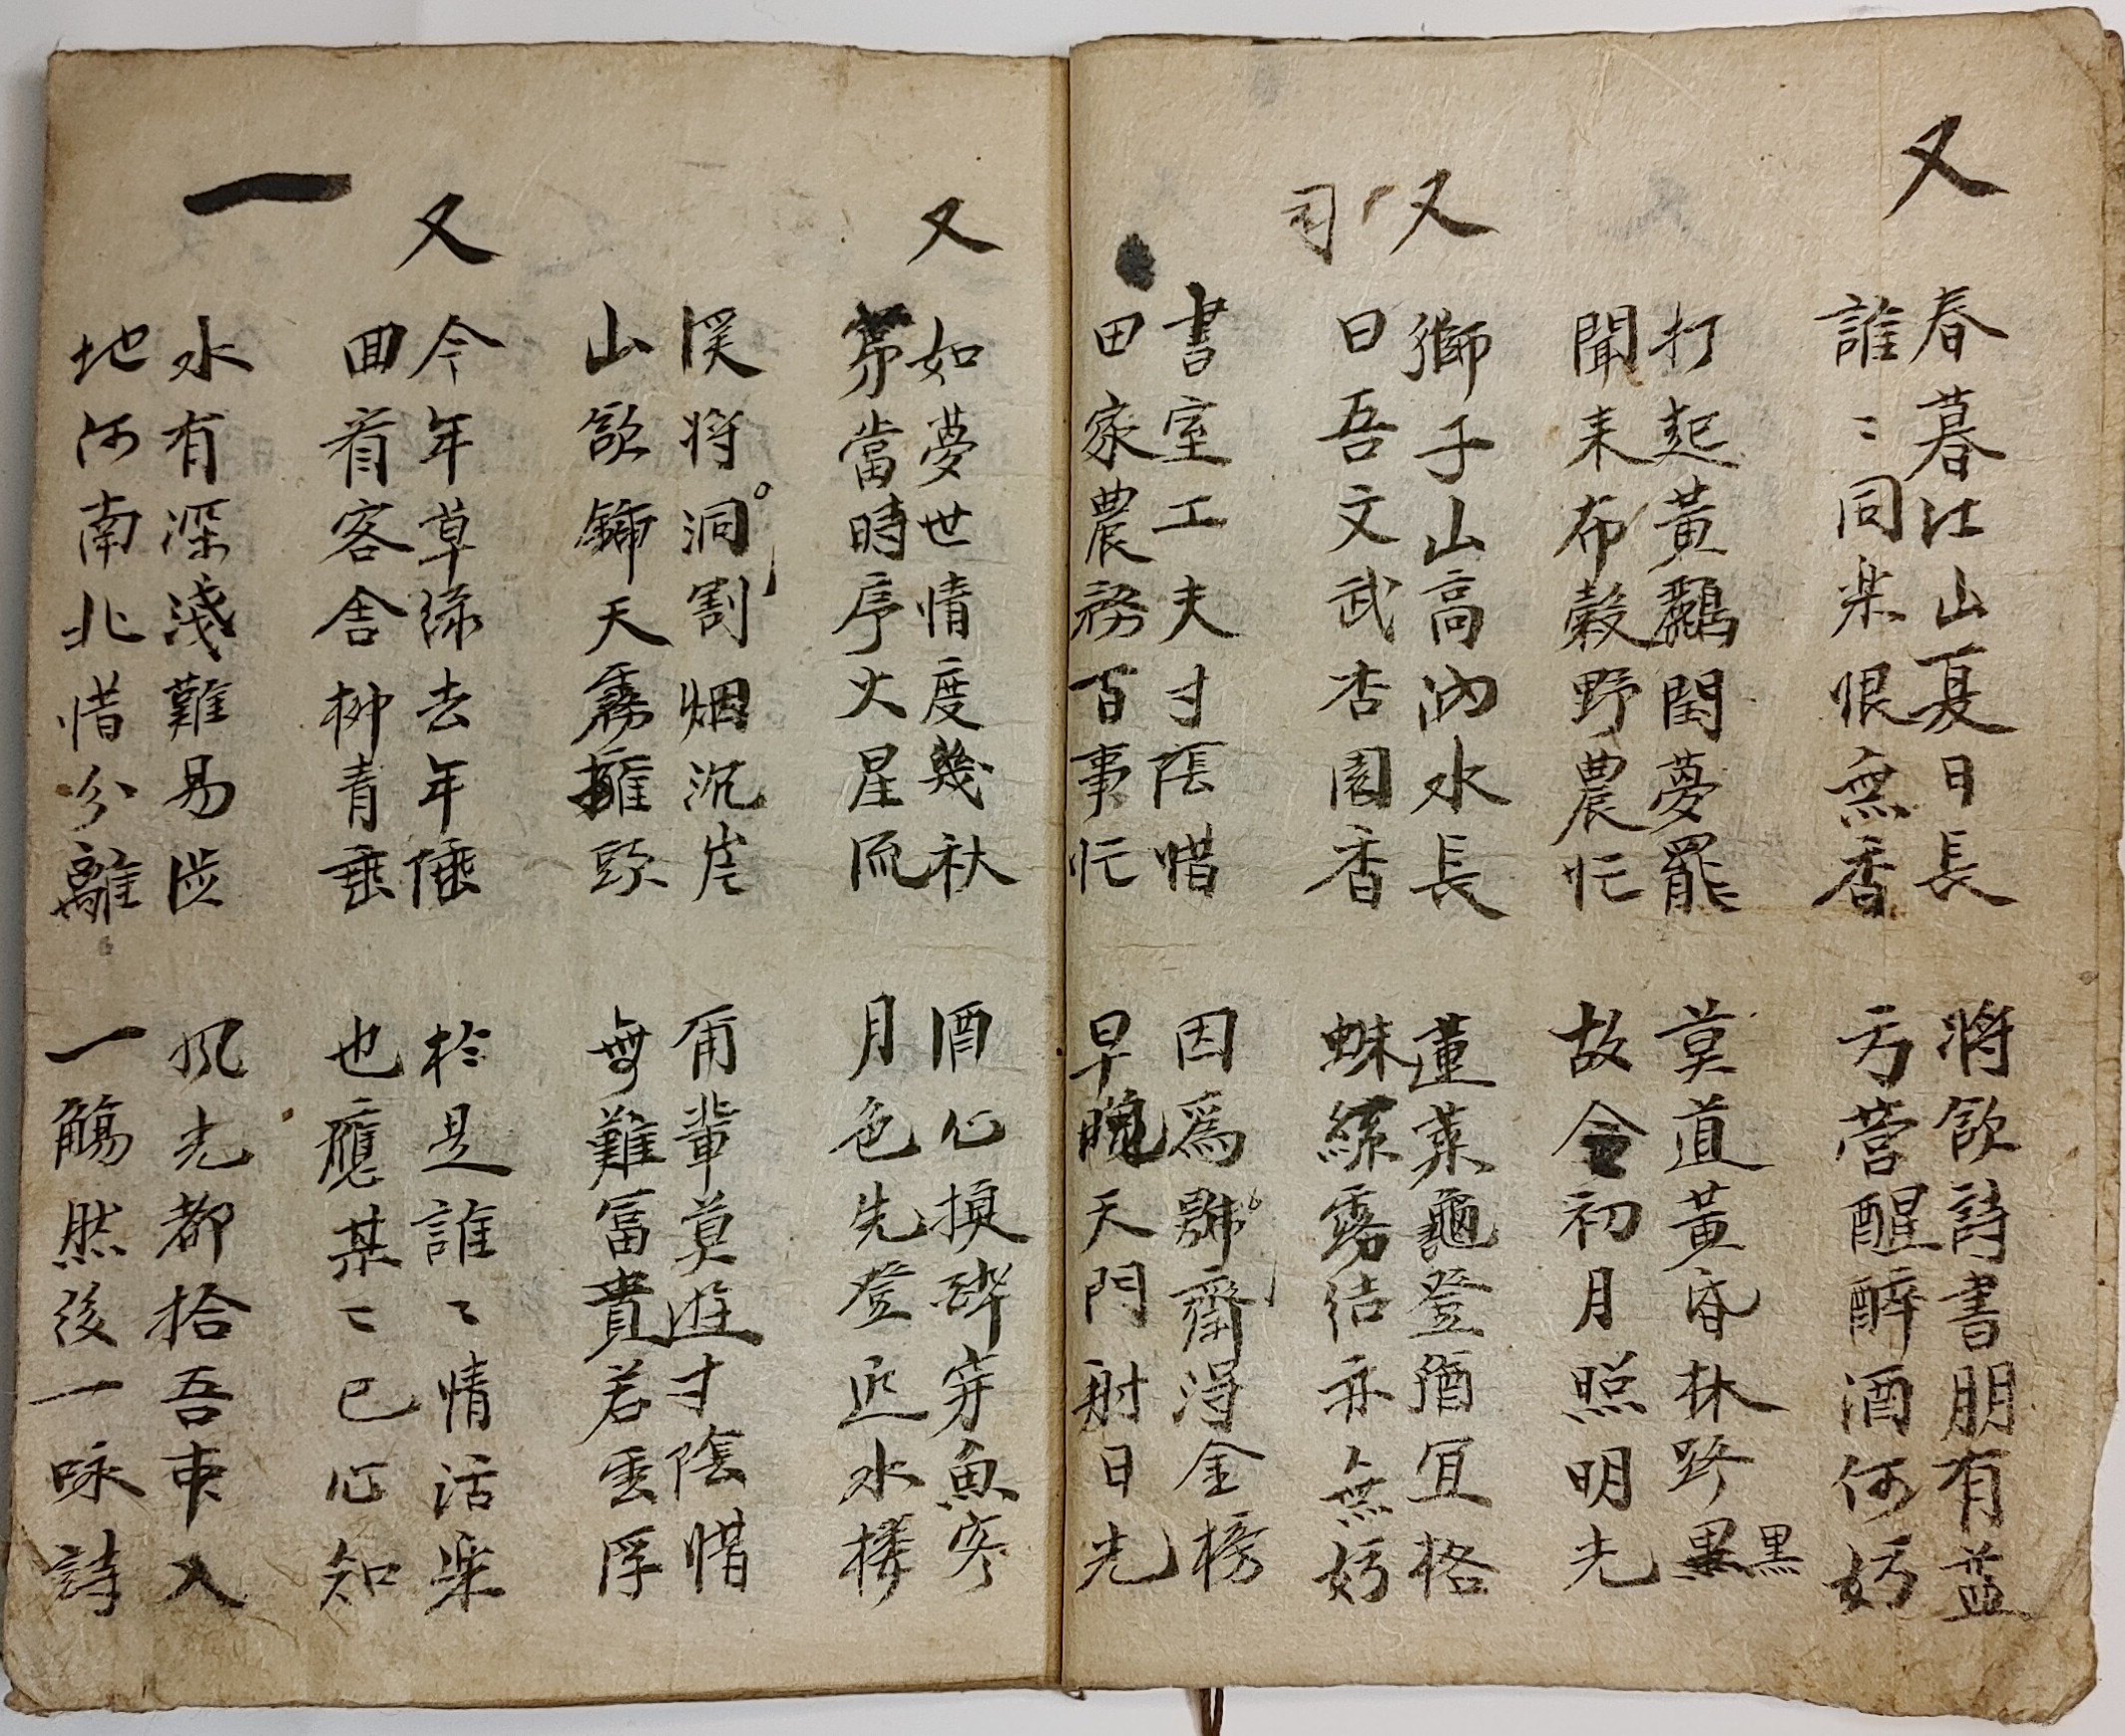 又
春暮江山夏日長　將飲詩書朋有益
誰〻同樂恨無香　方營醒醉酒何妨
打起黃鸝閨夢罷　莫道黃昏林野黑黑
聞耒布穀野農忙　故令初月照明光
又
司
獅子山高汭水長　蓮葉龜登酒宜格
曰吾文武杏園香　蛛絲露結亦無妨
書室工夫寸陰惜　因爲歸齊得金榜
田家農務百事忙　早晩天門射日光
又
如夢世情度幾秋　酒心換碎穿魚穴
茅當時序火星流　月色先登近水楼
溪將洞割烟沉岸　爾輩莫遊寸陰惜
山欲鋪天霧擁頭　無難冨貴若雲浮
又
今年草綠去年俹　於是誰〻情活樂
回看客舍柳青垂　也應某〻已心知
一
水有深淺難易涉　風光都拾吾束入
地河南北惜分離　一觴然後一咏詩